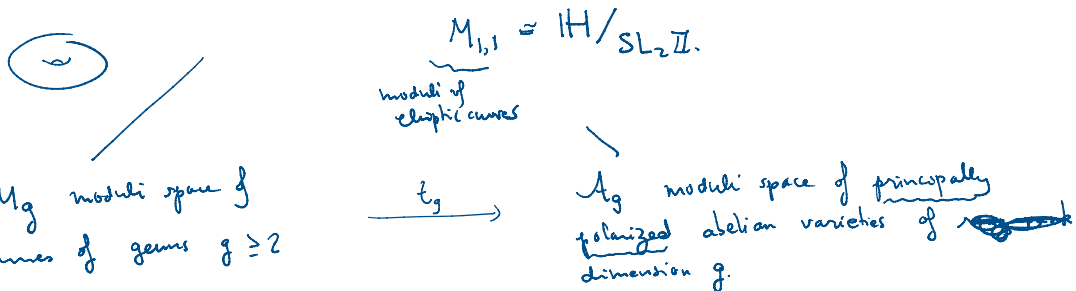 M_{1,1} = ℍ/SL_2 ℤ.
moduli of
elliptic curves
M_g moduli space of
genus g ≥ 2
t_g
A_g moduli space of principally
polarized abelian varieties of
dimension g.